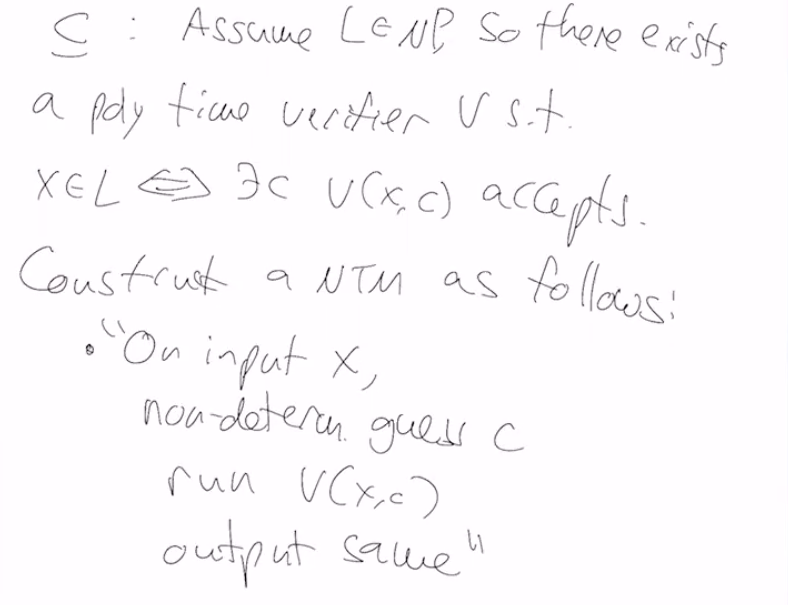 ⊆ : Assume L∈NP, so there exists
a poly time verifier V s.t.
x∈L ⟺ ∃c V(x,c) accepts.
Construct a NTM as follows:
• "On input x,
non-determ. guess c
run V(x,c)
output same"